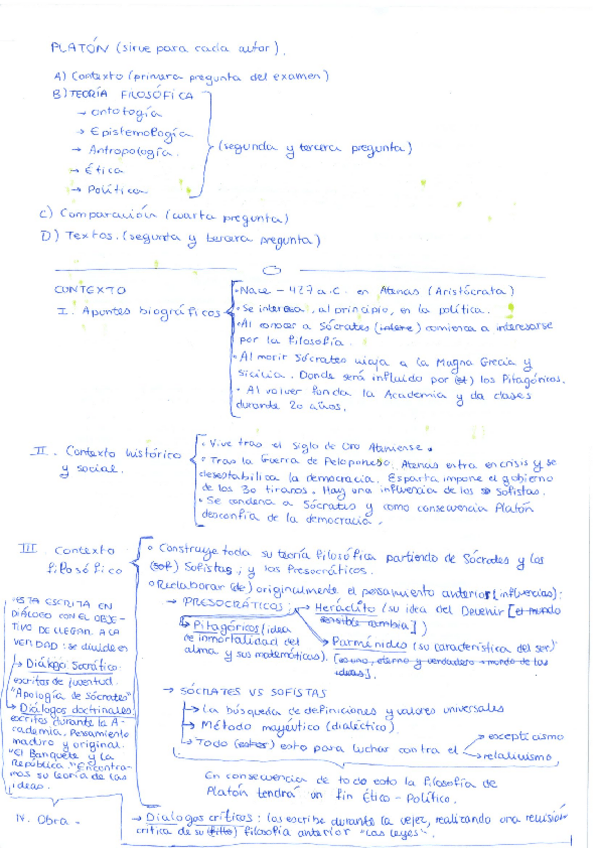 PLATÓN (sirve para cada autor).
A) Contexto (primera pregunta del examen)
B) TEORÍA FILOSÓFICA
→ Ontología
→ Epistemología
→ Antropología.
→ Ética
→ Política.
(segunda y tercera pregunta)
C) Comparación (cuarta pregunta)
D) Textos. (segunda y tercera pregunta)
CONTEXTO
I. Apuntes biográficos
• Nace - 427 a.C. en Atenas (Aristócrata)
• Se interesa, al principio, en la política.
• Al conocer a Sócrates comienza a interesarse
por la filosofía.
• Al morir Sócrates viaja a la Magna Grecia y
Sicilia. Donde será influido por los Pitagóricos.
• Al volver funda la Academia y da clases
durante 20 años.
II. Contexto histórico
y social.
• Vive tras el siglo de Oro Ateniense.
• Tras la Guerra de Peloponeso. Atenas entra en crisis y se
desestabilica la democracia. Esparta impone el gobierno
de los 30 tiranos. Hay una influencia de los Sofistas.
• Se condena a Sócrates y como consecuencia Platón
desconfía de la democracia.
III. Contexto
filosófico
• Construye toda su teoría filosófica partiendo de Sócrates y los
(sof) Sofistas; y los Presocráticos.
• Reelaborar (de) originalmente el pensamiento anterior (influencias):
→ PRESOCRÁTICOS: → Heráclito (su idea del Devenir [el mundo
sensible cambia])
→ Pitagóricos (idea
de inmortalidad del
alma y sus matemáticas).
→ Parménides (su característica del ser)
[es uno, eterno y verdadero = mundo de las
ideas].
→ SÓCRATES VS SOFISTAS
→ La búsqueda de definiciones y valores universales
→ Método mayéutico (dialéctico)
→ Todo esto para luchar contra el
→ escepticismo
→ relativismo
En consecuencia de todo esto la filosofía de
Platón tendrá un fin Ético - Político.
ESTA ESCRITA EN
DIÁLOGO CON EL OBJE-
TIVO DE LLEGAR A LA
VERDAD: se divide en
→ Diálogo Socrático:
escritos de juventud.
"Apología de Sócrates"
→ Diálogos doctrinales
escritos durante la A-
cademia. Pensamiento
maduro y original.
"El Banquete y la
República." Encontra-
mos su teoría de las
ideas.
IV. Obra.
→ Dialogos críticos: los escribe durante la vejez, realizando una revisión
crítica de su filosofía anterior "Las leyes".